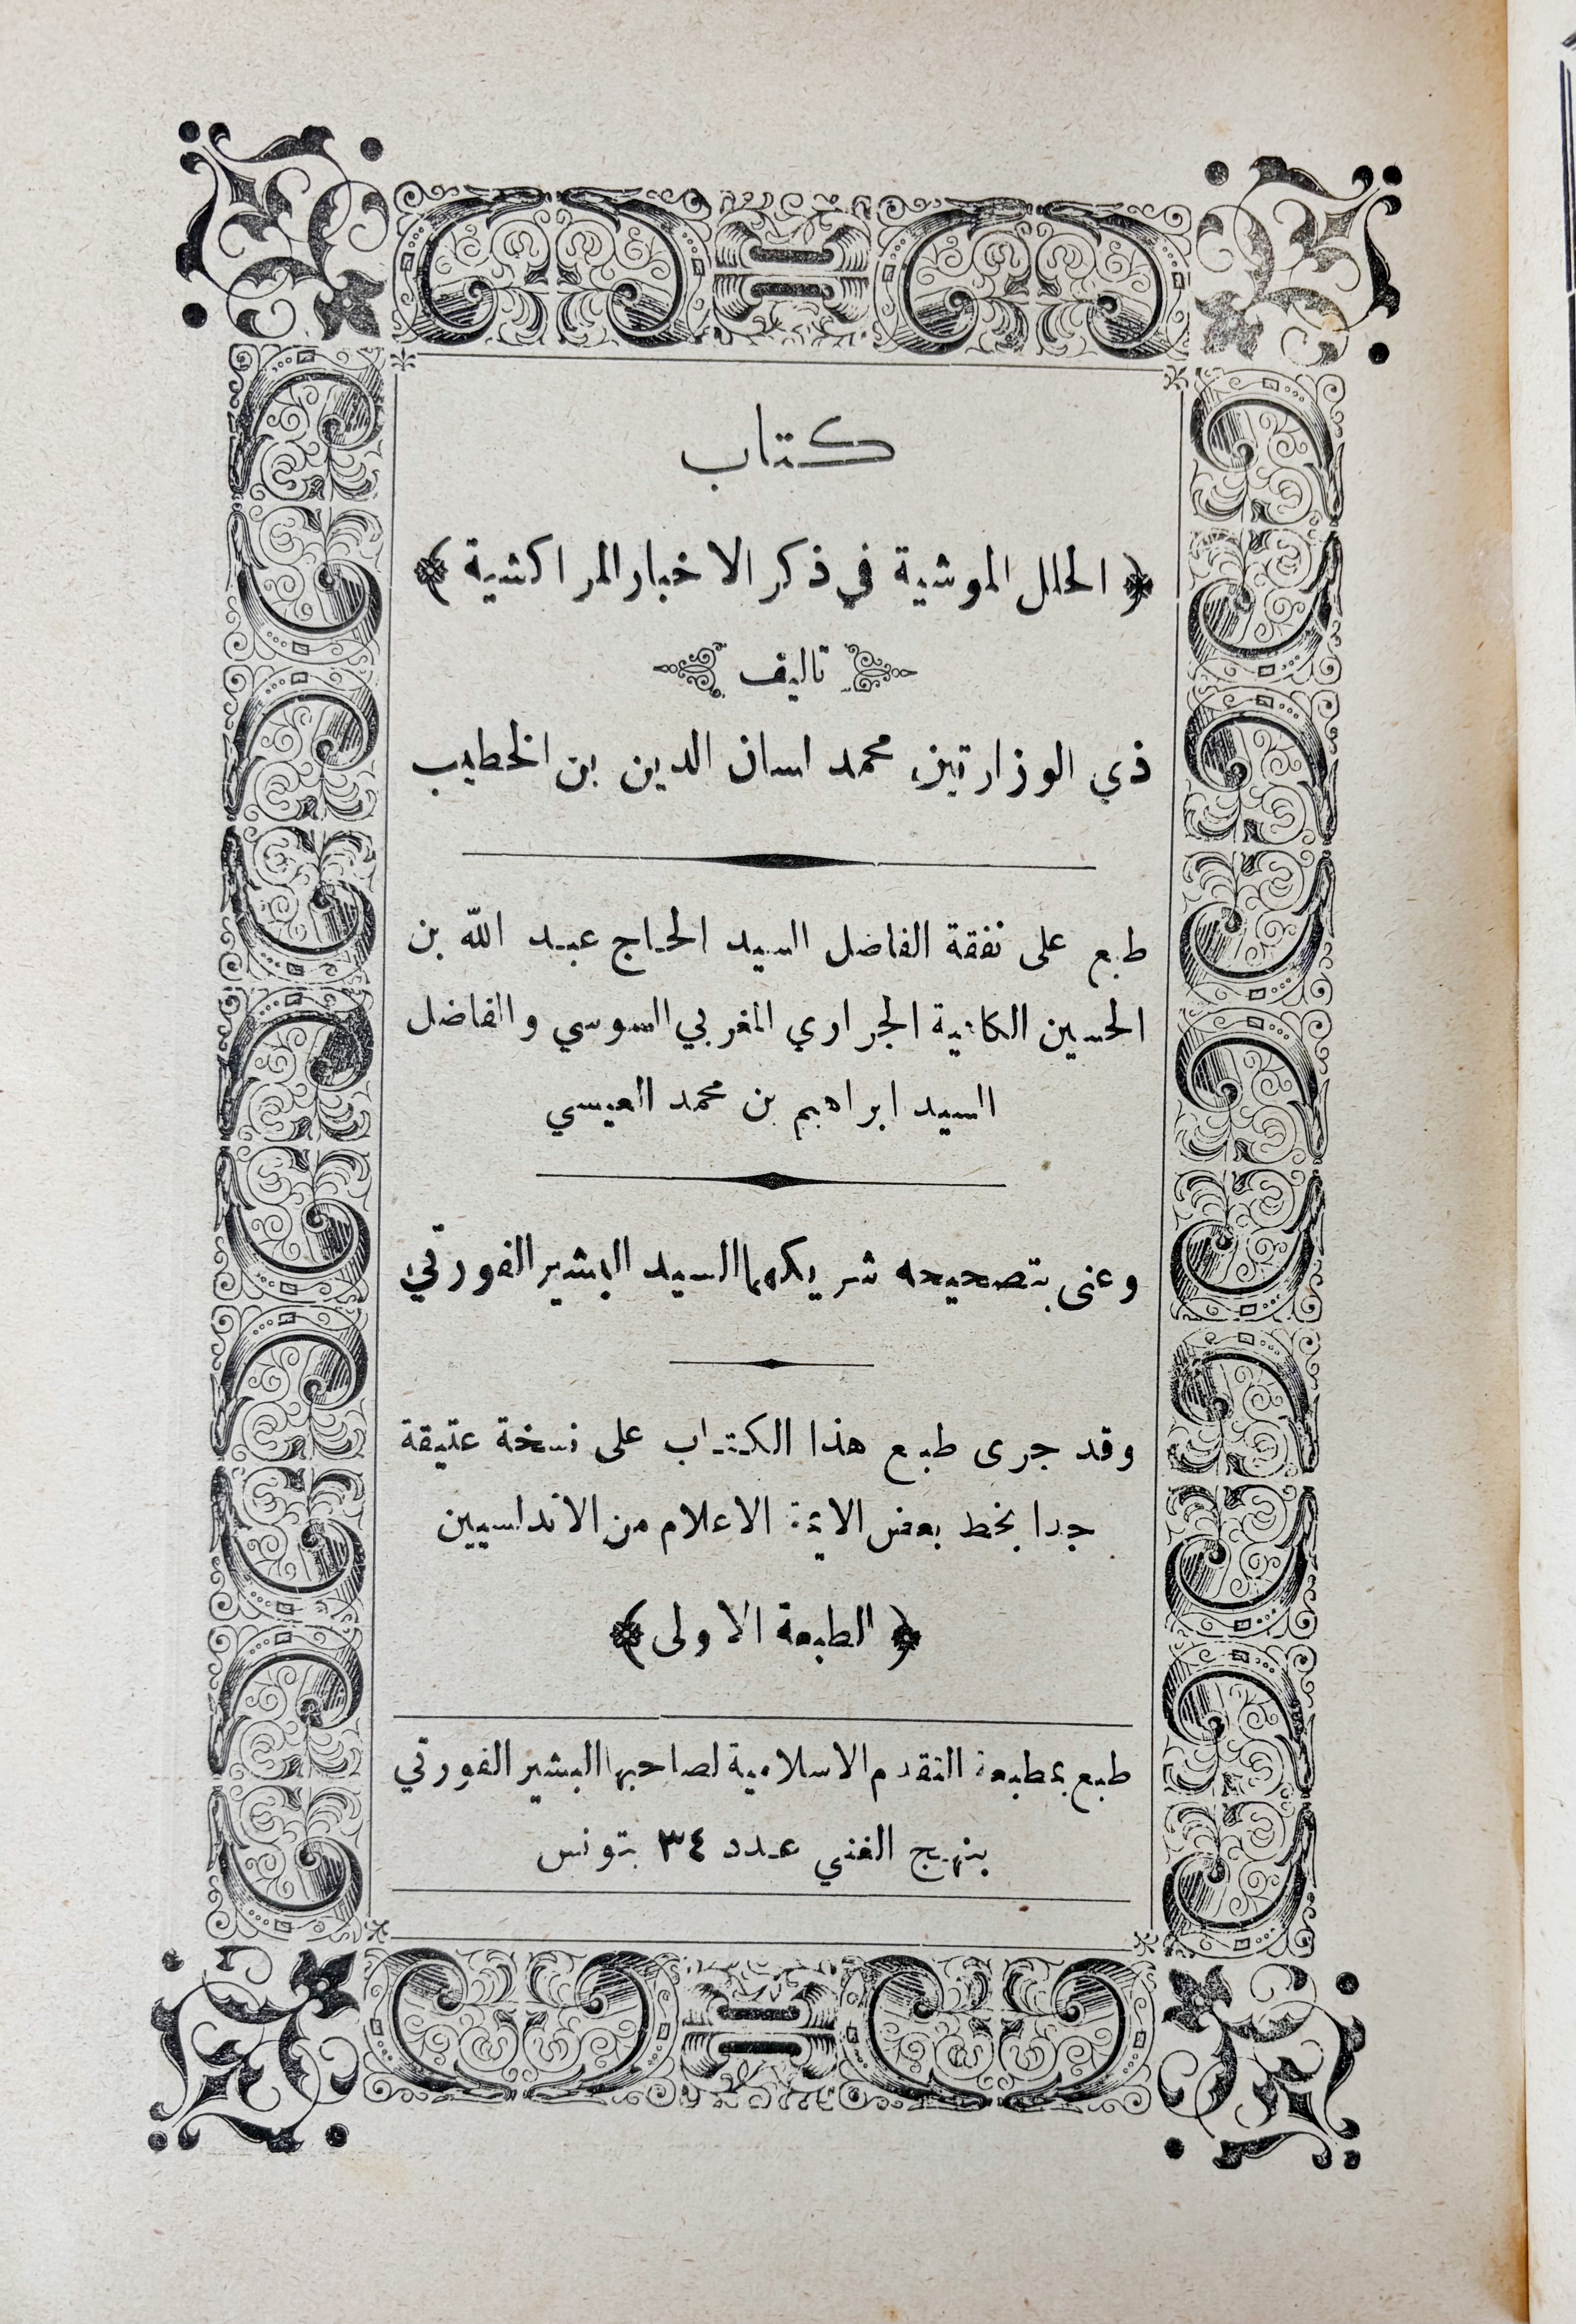 كتاب
﴿ الحلل الموشية في ذكر الاخبار المراكشية ﴾
تاليف
ذي الوزارتين محمد لسان الدين بن الخطيب
طبع على نفقة الفاضل السيد الحاج عبد الله بن
الحسين الجراري المغربي السوسي والفاضل
السيد ابراهيم بن محمد العيسي
وعنى بتصحيحه شريكهما السيد البشير الفورتي
وقد جرى طبع هذا الكتاب على نسخة عتيقة
جدا بخط بعض الايمة الاعلام من الاندلسيين
﴿ الطبعة الاولى ﴾
طبع بمطبعة التقدم الاسلامية لصاحبها البشير الفورتي
بنهج الغني عدد ٣٤ بتونس